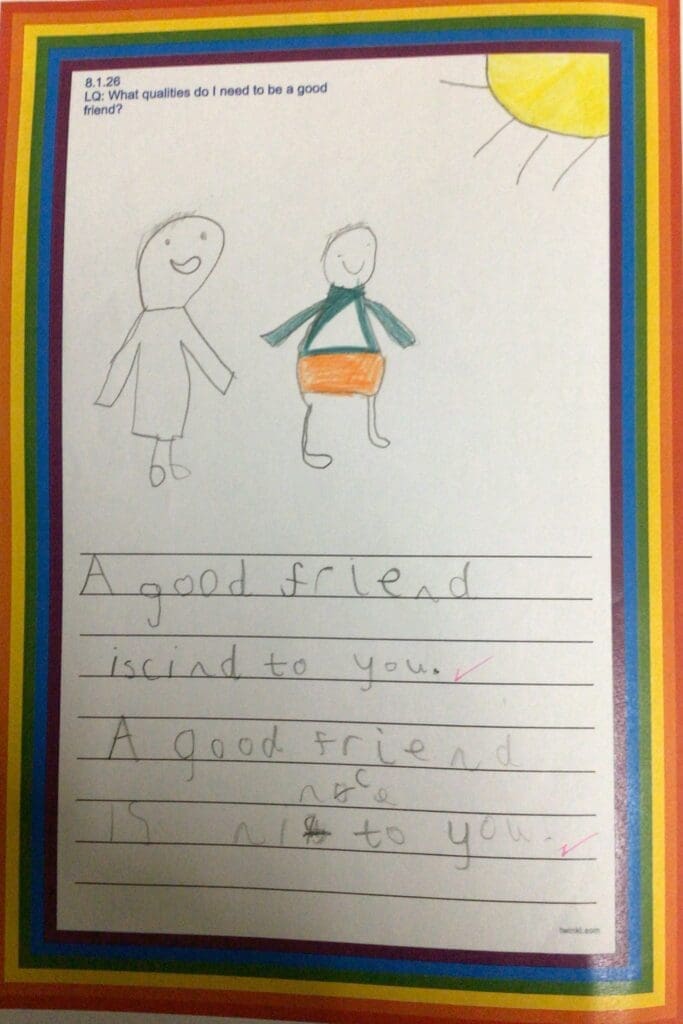 8.1.26
LQ: What qualities do I need to be a good
friend?
A good friend
iscind to you.
A good friend
is ni to you.
twinkl.com